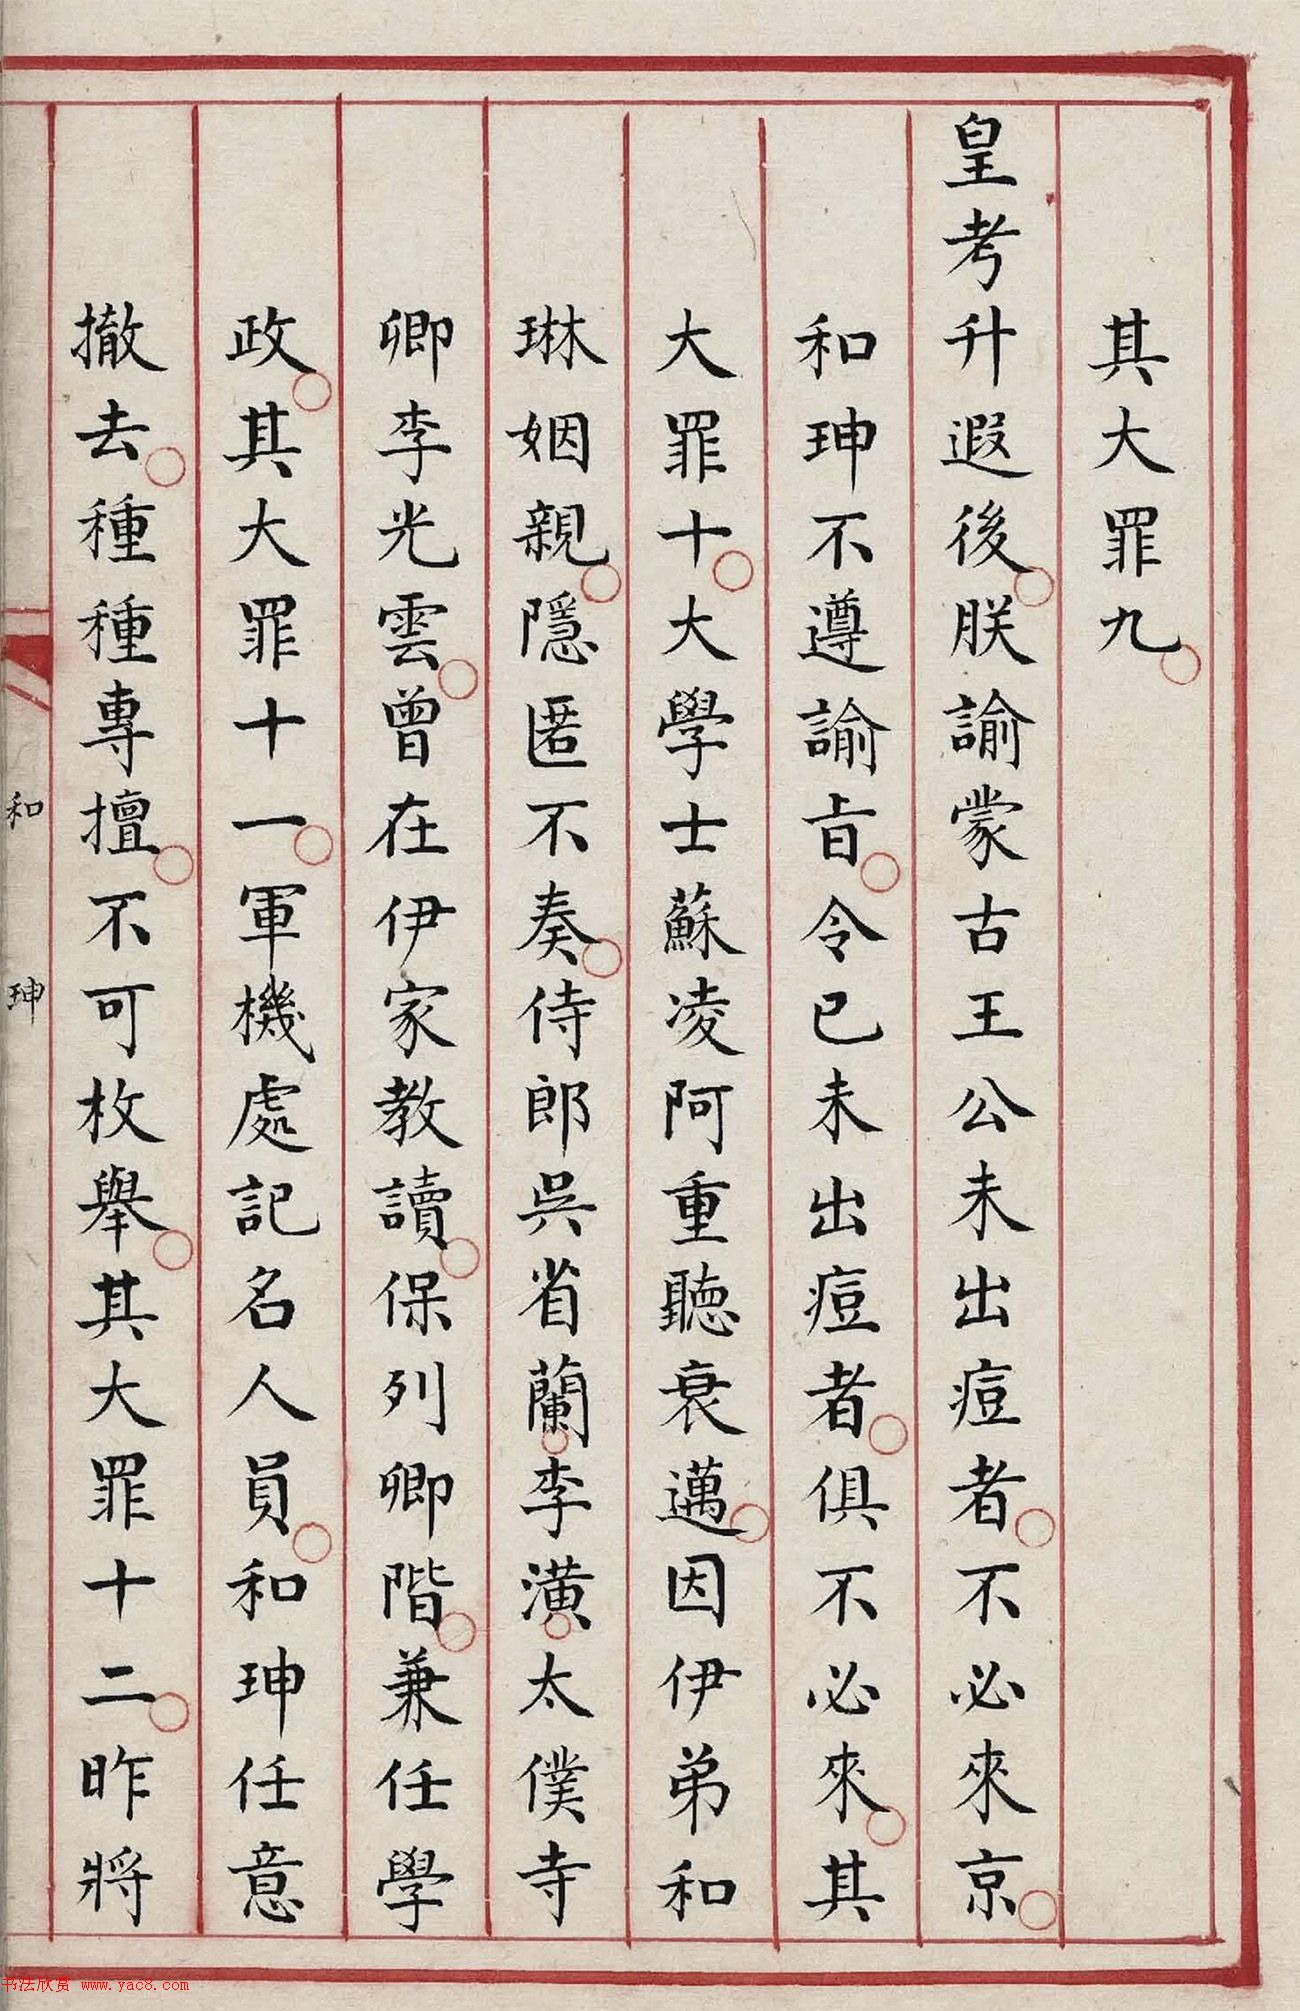 其大罪九
皇考升遐後朕諭蒙古王公未出痘者不必來京
和珅不遵諭旨令已未出痘者俱不必來其
大罪十大學士蘇凌阿重聽衰邁因伊弟和
琳姻親隱匿不奏侍郎吳省蘭李潢太僕寺
卿李光雲曾在伊家教讀保列卿階兼任學
政其大罪十一軍機處記名人員和珅任意
撤去種種專擅不可枚舉其大罪十二昨將
和珅
书法欣赏 www.yac8.com